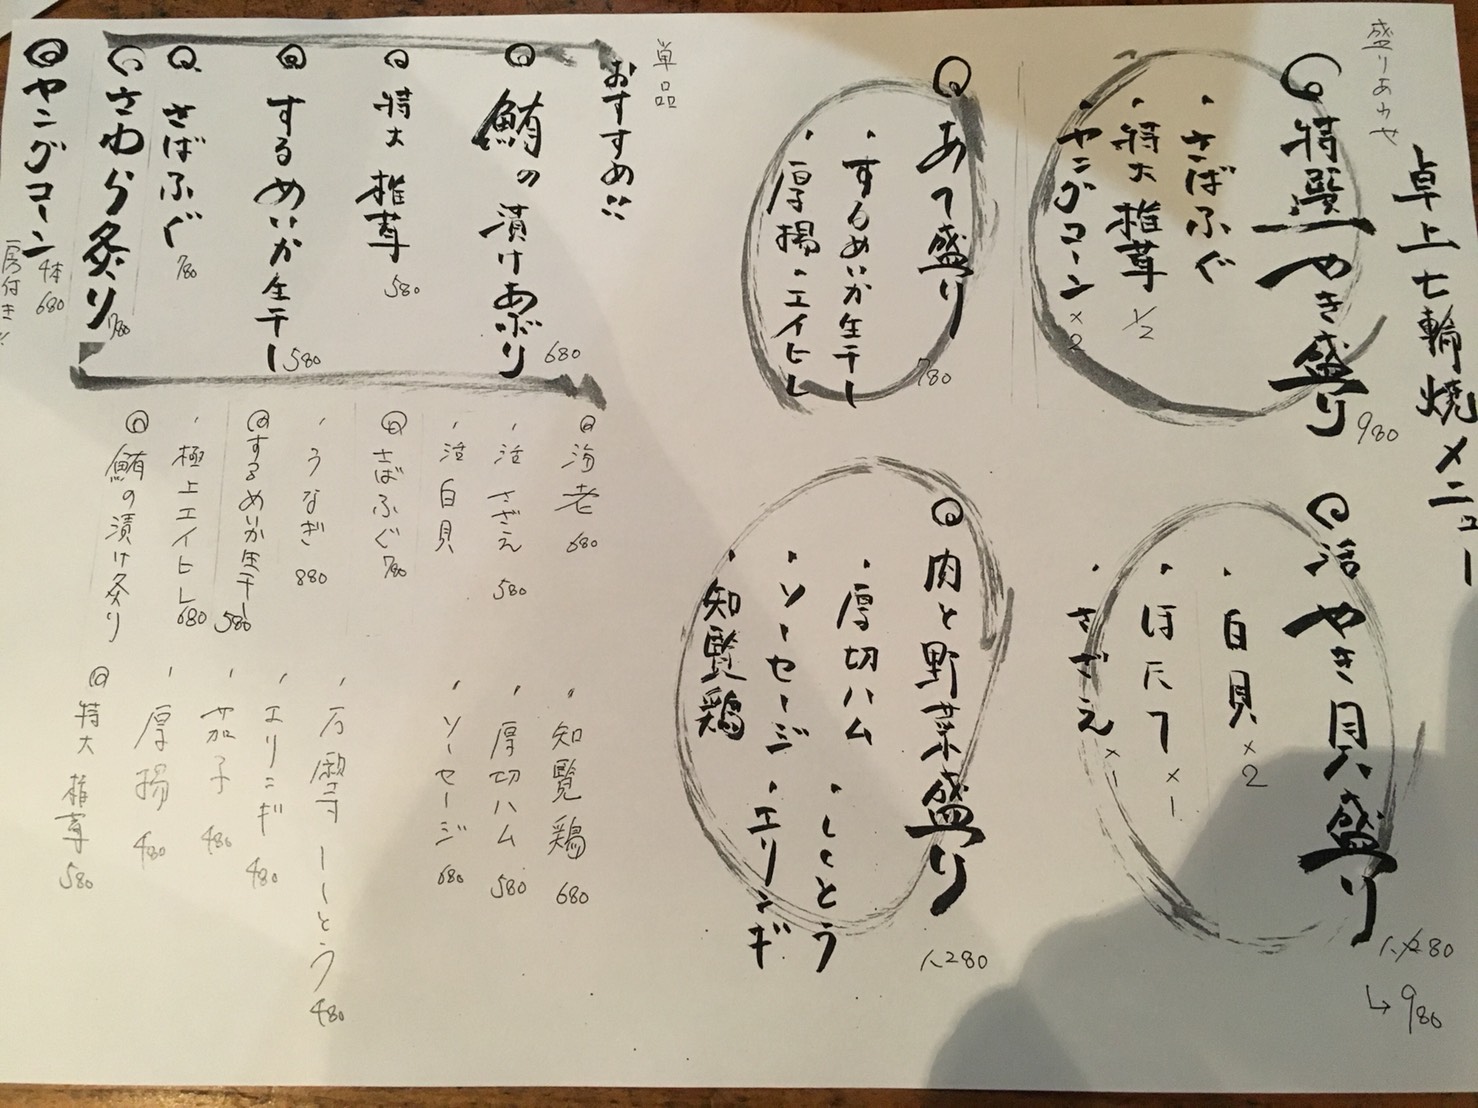 卓上七輪焼メニュー
盛りあわせ
特選やき盛り 980
・さばふぐ
・特大椎茸 1/2
・ヤングコーン×2
活やき貝盛り 1,280
↳980
・白貝×2
・ほたて×1
・さざえ×1
あて盛り 780
・するめいか生干し
・厚揚・エイヒレ
肉と野菜盛り 1,280
・厚切ハム
・ししとう
・ソーセージ
・エリンギ
・知覧鶏
単品
おすすめ!!
鮪の漬けあぶり 680
特大椎茸 580
するめいか生干し 580
さばふぐ 780
さわら炙り 780
ヤングコーン 4本 680
房付き!!
海老 680
・活さざえ 580
・活白貝
さばふぐ 780
・うなぎ 880
するめいか生干し 580
・極上エイヒレ 680
鮪の漬け炙り
・知覧鶏 680
・厚切ハム 580
・ソーセージ 680
・万願寺ししとう 480
・エリンギ 480
・茄子 480
・厚揚 480
特大椎茸 580